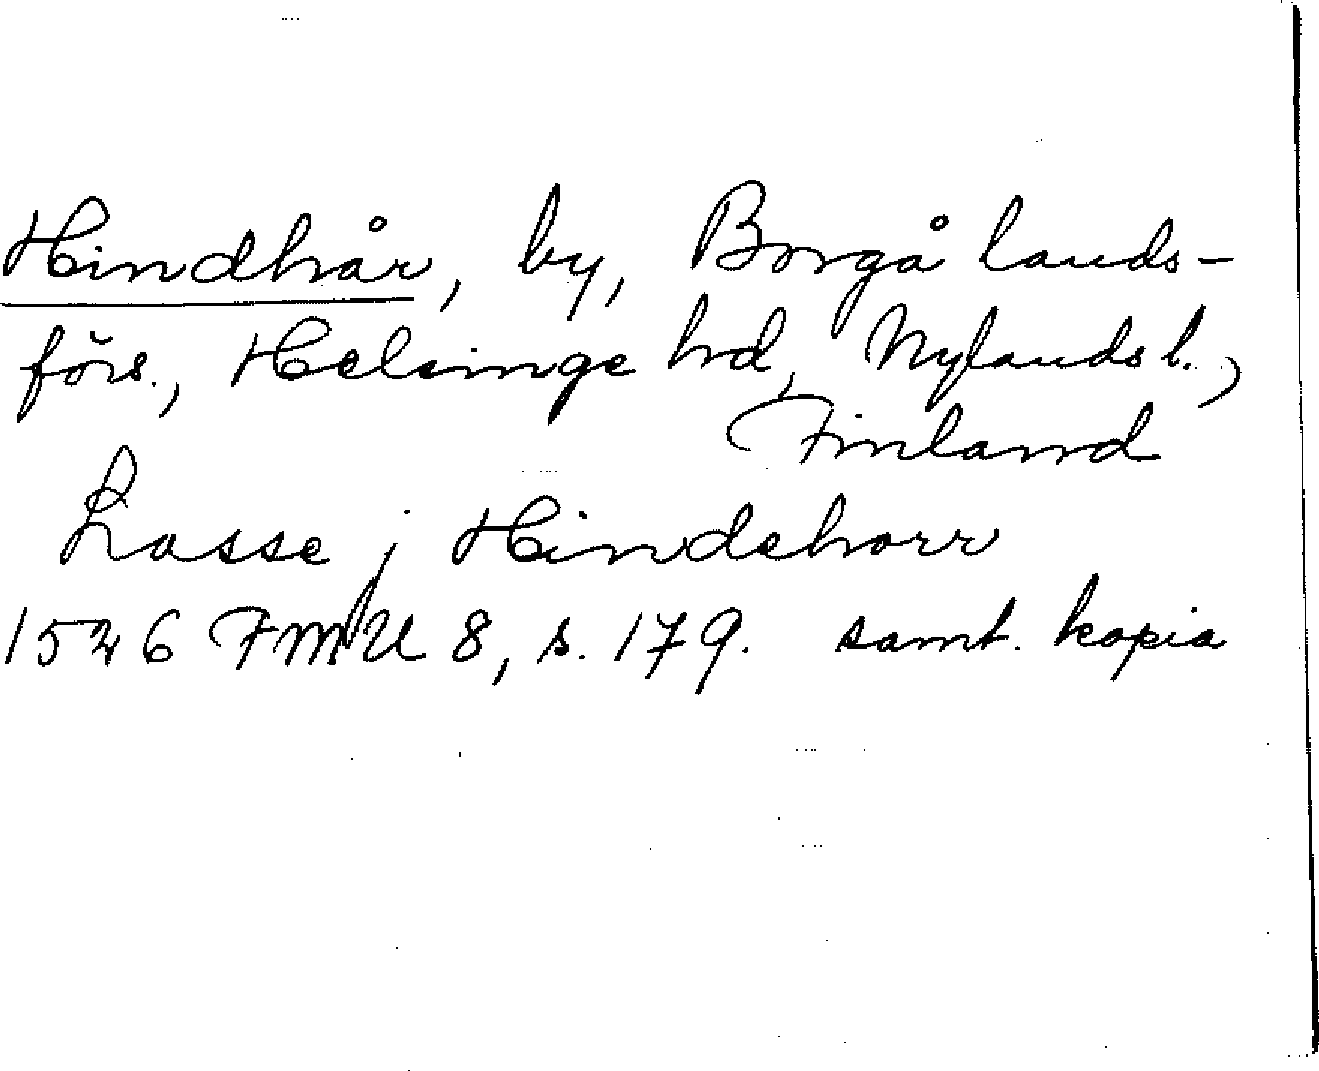 Hindhår, by, Borgå lands-
förs., Helsinge hd, Nylands l.,
Finland
Lasse j Hindehorr
1526 FMU 8, s. 179. samt. kopia